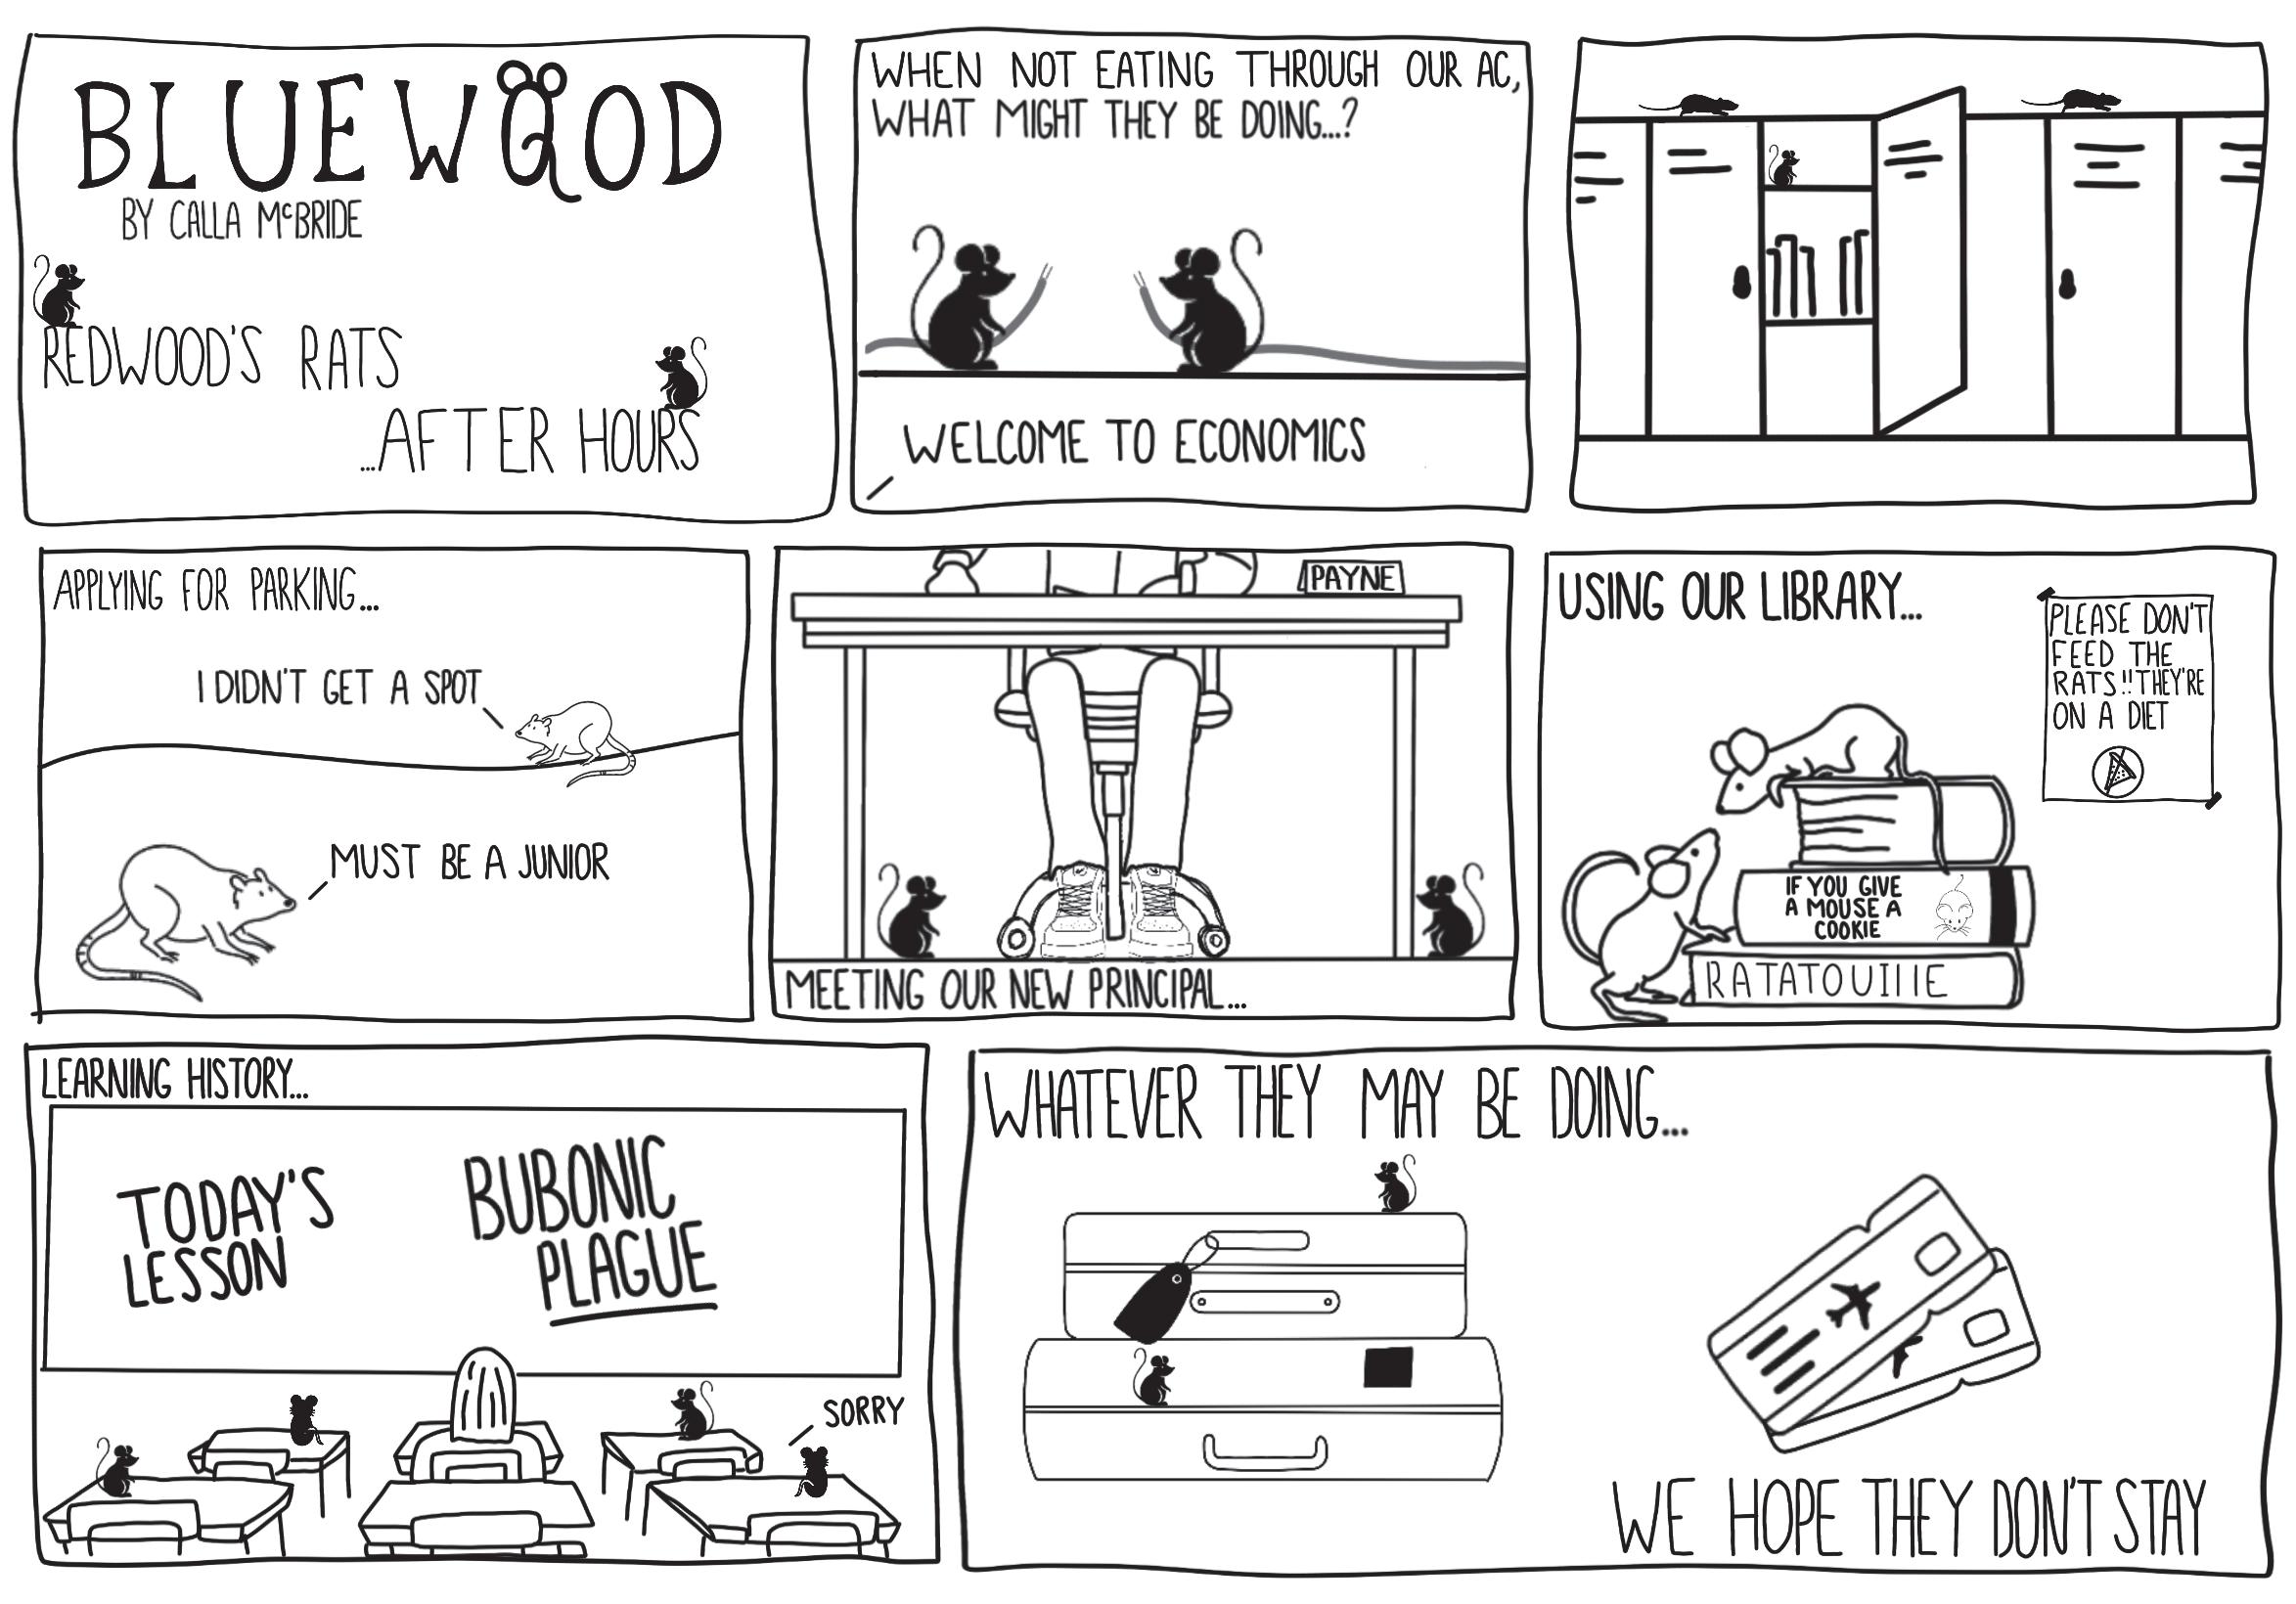 BLUEWOOD
BY CALLA McBRIDE
REDWOOD'S RATS
...AFTER HOURS
WHEN NOT EATING THROUGH OUR AC,
WHAT MIGHT THEY BE DOING...?
WELCOME TO ECONOMICS
APPLYING FOR PARKING...
I DIDN'T GET A SPOT
MUST BE A JUNIOR
PAYNE
MEETING OUR NEW PRINCIPAL...
USING OUR LIBRARY...
PLEASE DON'T
FEED THE
RATS!! THEY'RE
ON A DIET
IF YOU GIVE
A MOUSE A
COOKIE
RATATOUIllE
LEARNING HISTORY...
TODAY'S
LESSON
BUBONIC
PLAGUE
SORRY
WHATEVER THEY MAY BE DOING...
WE HOPE THEY DON'T STAY